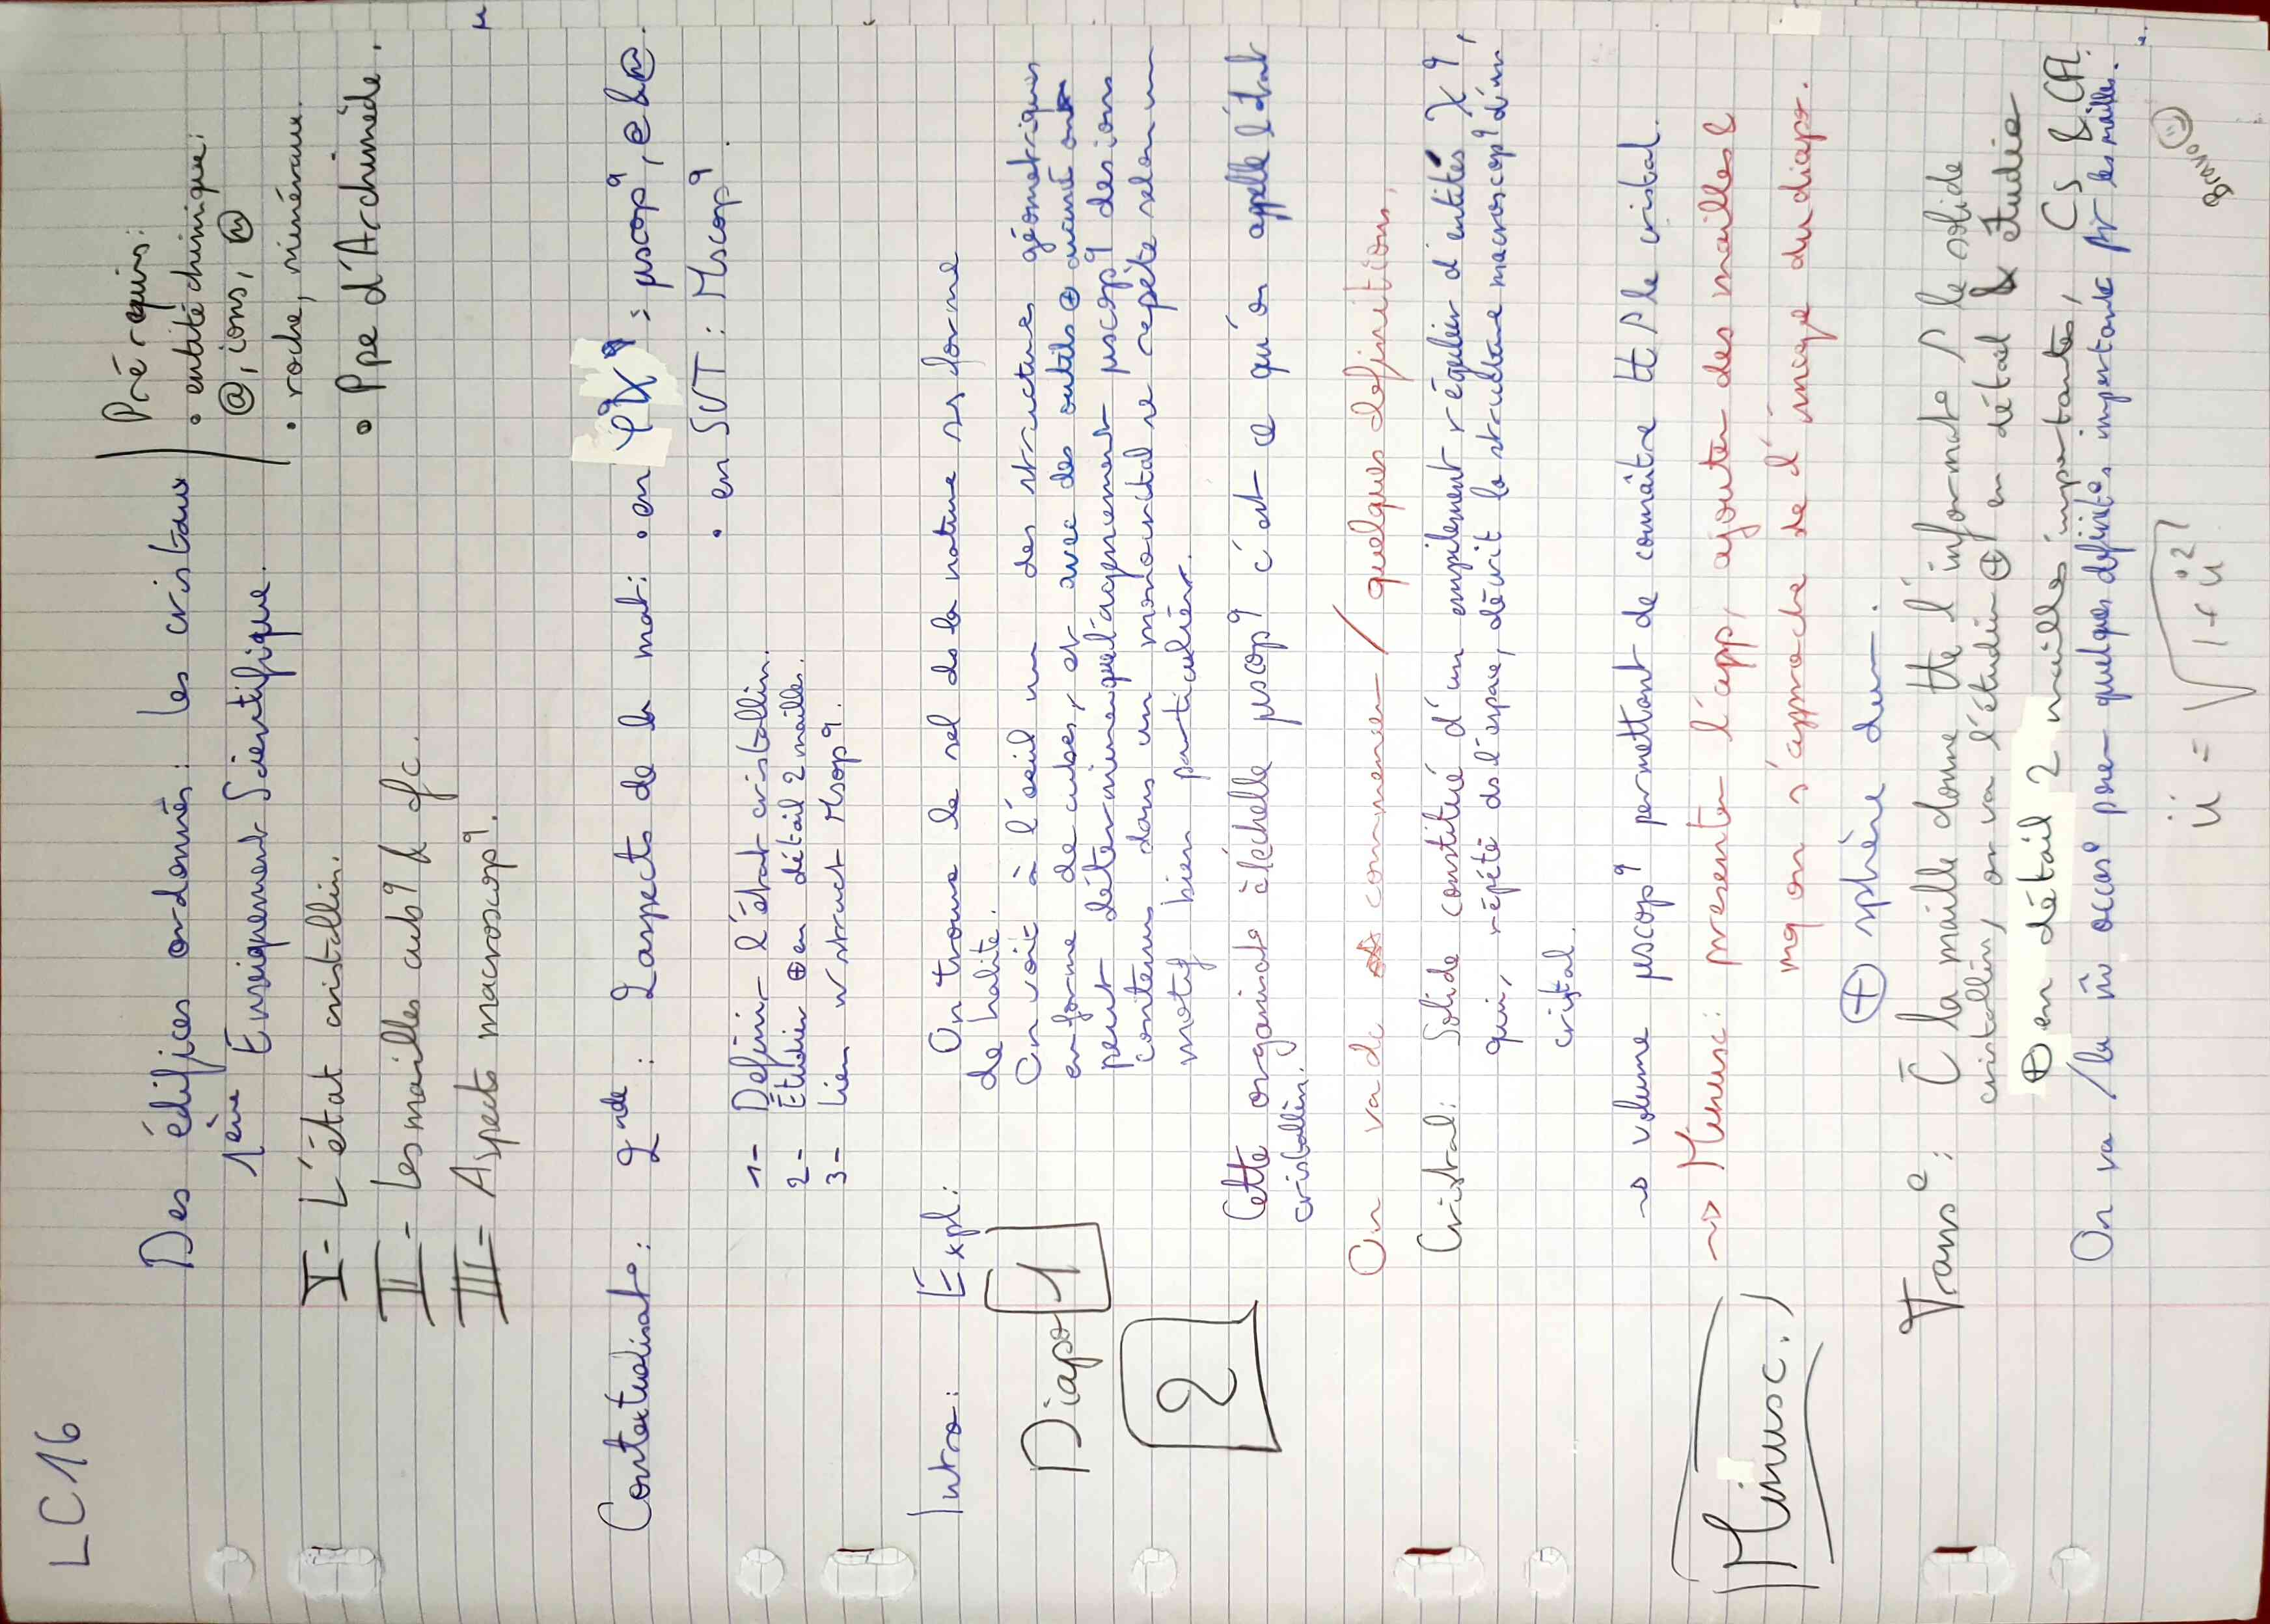 LC16
Des édifices ordonnés : les cristaux
1ère Enseignement Scientifique.
Pré requis :
• entité chimique :
@, ions, ⓜ
• roche, minéraux.
• Ppe d'Archimède.
I - L'état cristallin.
II - Les mailles cub⁹ & fc.
III - Aspects macroscop⁹.
Contextualisat° : 2nde : 2 aspects de la mat : • en φχ⁹ : µscop⁹, @ & ⓜ.
• en SVT : Mscop⁹.
1- Définir l'état cristallin.
2- Étudier ⊕ en détail 2 mailles.
3- Lien n/ struct Mscop⁹.
Intro : Expl : On trouve le sel ds la nature ss forme
de halite.
Diapo 1
On voit à l'œil nu des structures géométriques
en forme de cubes, et avec des outils ⊕ avancé on
peut déterminer que l'agencement µscop⁹ des ions
contenus dans un monocristal se répète selon un
motif bien particulier.
2
Cette organisat° à l'échelle µscop⁹ c'est ce qu'on appelle l'état
cristallin.
On va dc commencer / quelques définitions,
Cristal : Solide constitué d'un empilement régulier d'entités χ⁹,
qui, répété ds l'espace, décrit la structure macroscop⁹ d'un
cristal.
→ volume µscop⁹ permettant de connaître tt le cristal.
Minusc.
→ Minusc : presenter l'app, ajouter des mailles &
mq on s'approche de l'image du diapo.
⊕ sphère dur.
Trans° : C̄ la maille donne tte l'informat° / le solide
cristallin, on va l'étudier ⊕ en détal & étudie
⊕ en détail 2 mailles importantes, CS & CFC.
On va / la m̂ occas° poser quelques définit°s importante pr les mailles.
ü = √1 + u̇²
Bravo